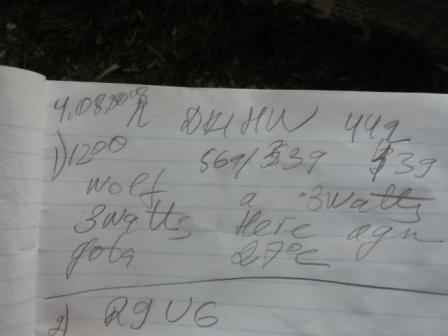 4.08.2008
DK1HW 449
1) 1200 569/339 339
wolf a 3watts
3watts Here agn
27°C
2) R9U6